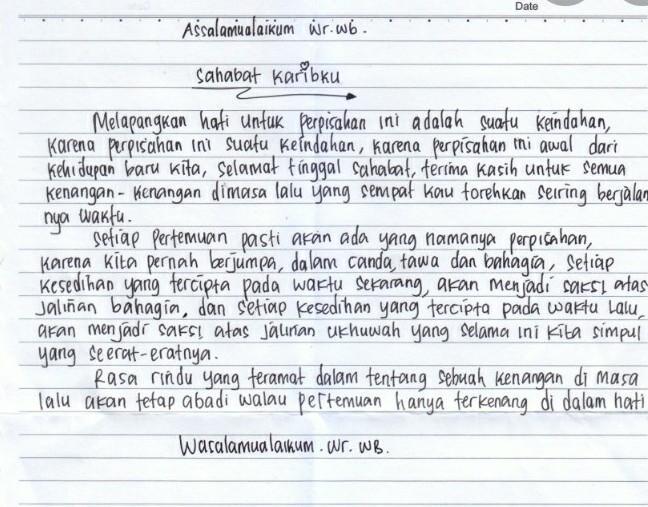 Date
Assalamualaikum Wr.wb.
Sahabat Karibku
Melapangkan hati untuk perpisahan ini adalah suatu keindahan,
karena perpisahan ini suatu keindahan, karena perpisahan ini awal dari
kehidupan baru kita, selamat tinggal sahabat, terima kasih untuk semua
kenangan-kenangan dimasa lalu yang sempat kau torehkan seiring berjalan
nya waktu.
Setiap pertemuan pasti akan ada yang namanya perpisahan,
karena kita pernah berjumpa, dalam canda, tawa dan bahagia, setiap
kesedihan yang tercipta pada waktu sekarang, akan menjadi saksi atas
jalinan bahagia, dan setiap kesedihan yang tercipta pada waktu lalu,
akan menjadi saksi atas jalinan ukhuwah yang selama ini kita simpul
yang seerat-eratnya.
Rasa rindu yang teramat dalam tentang sebuah kenangan di masa
lalu akan tetap abadi walau pertemuan hanya terkenang di dalam hati
Wasalamualaikum. Wr. WB.